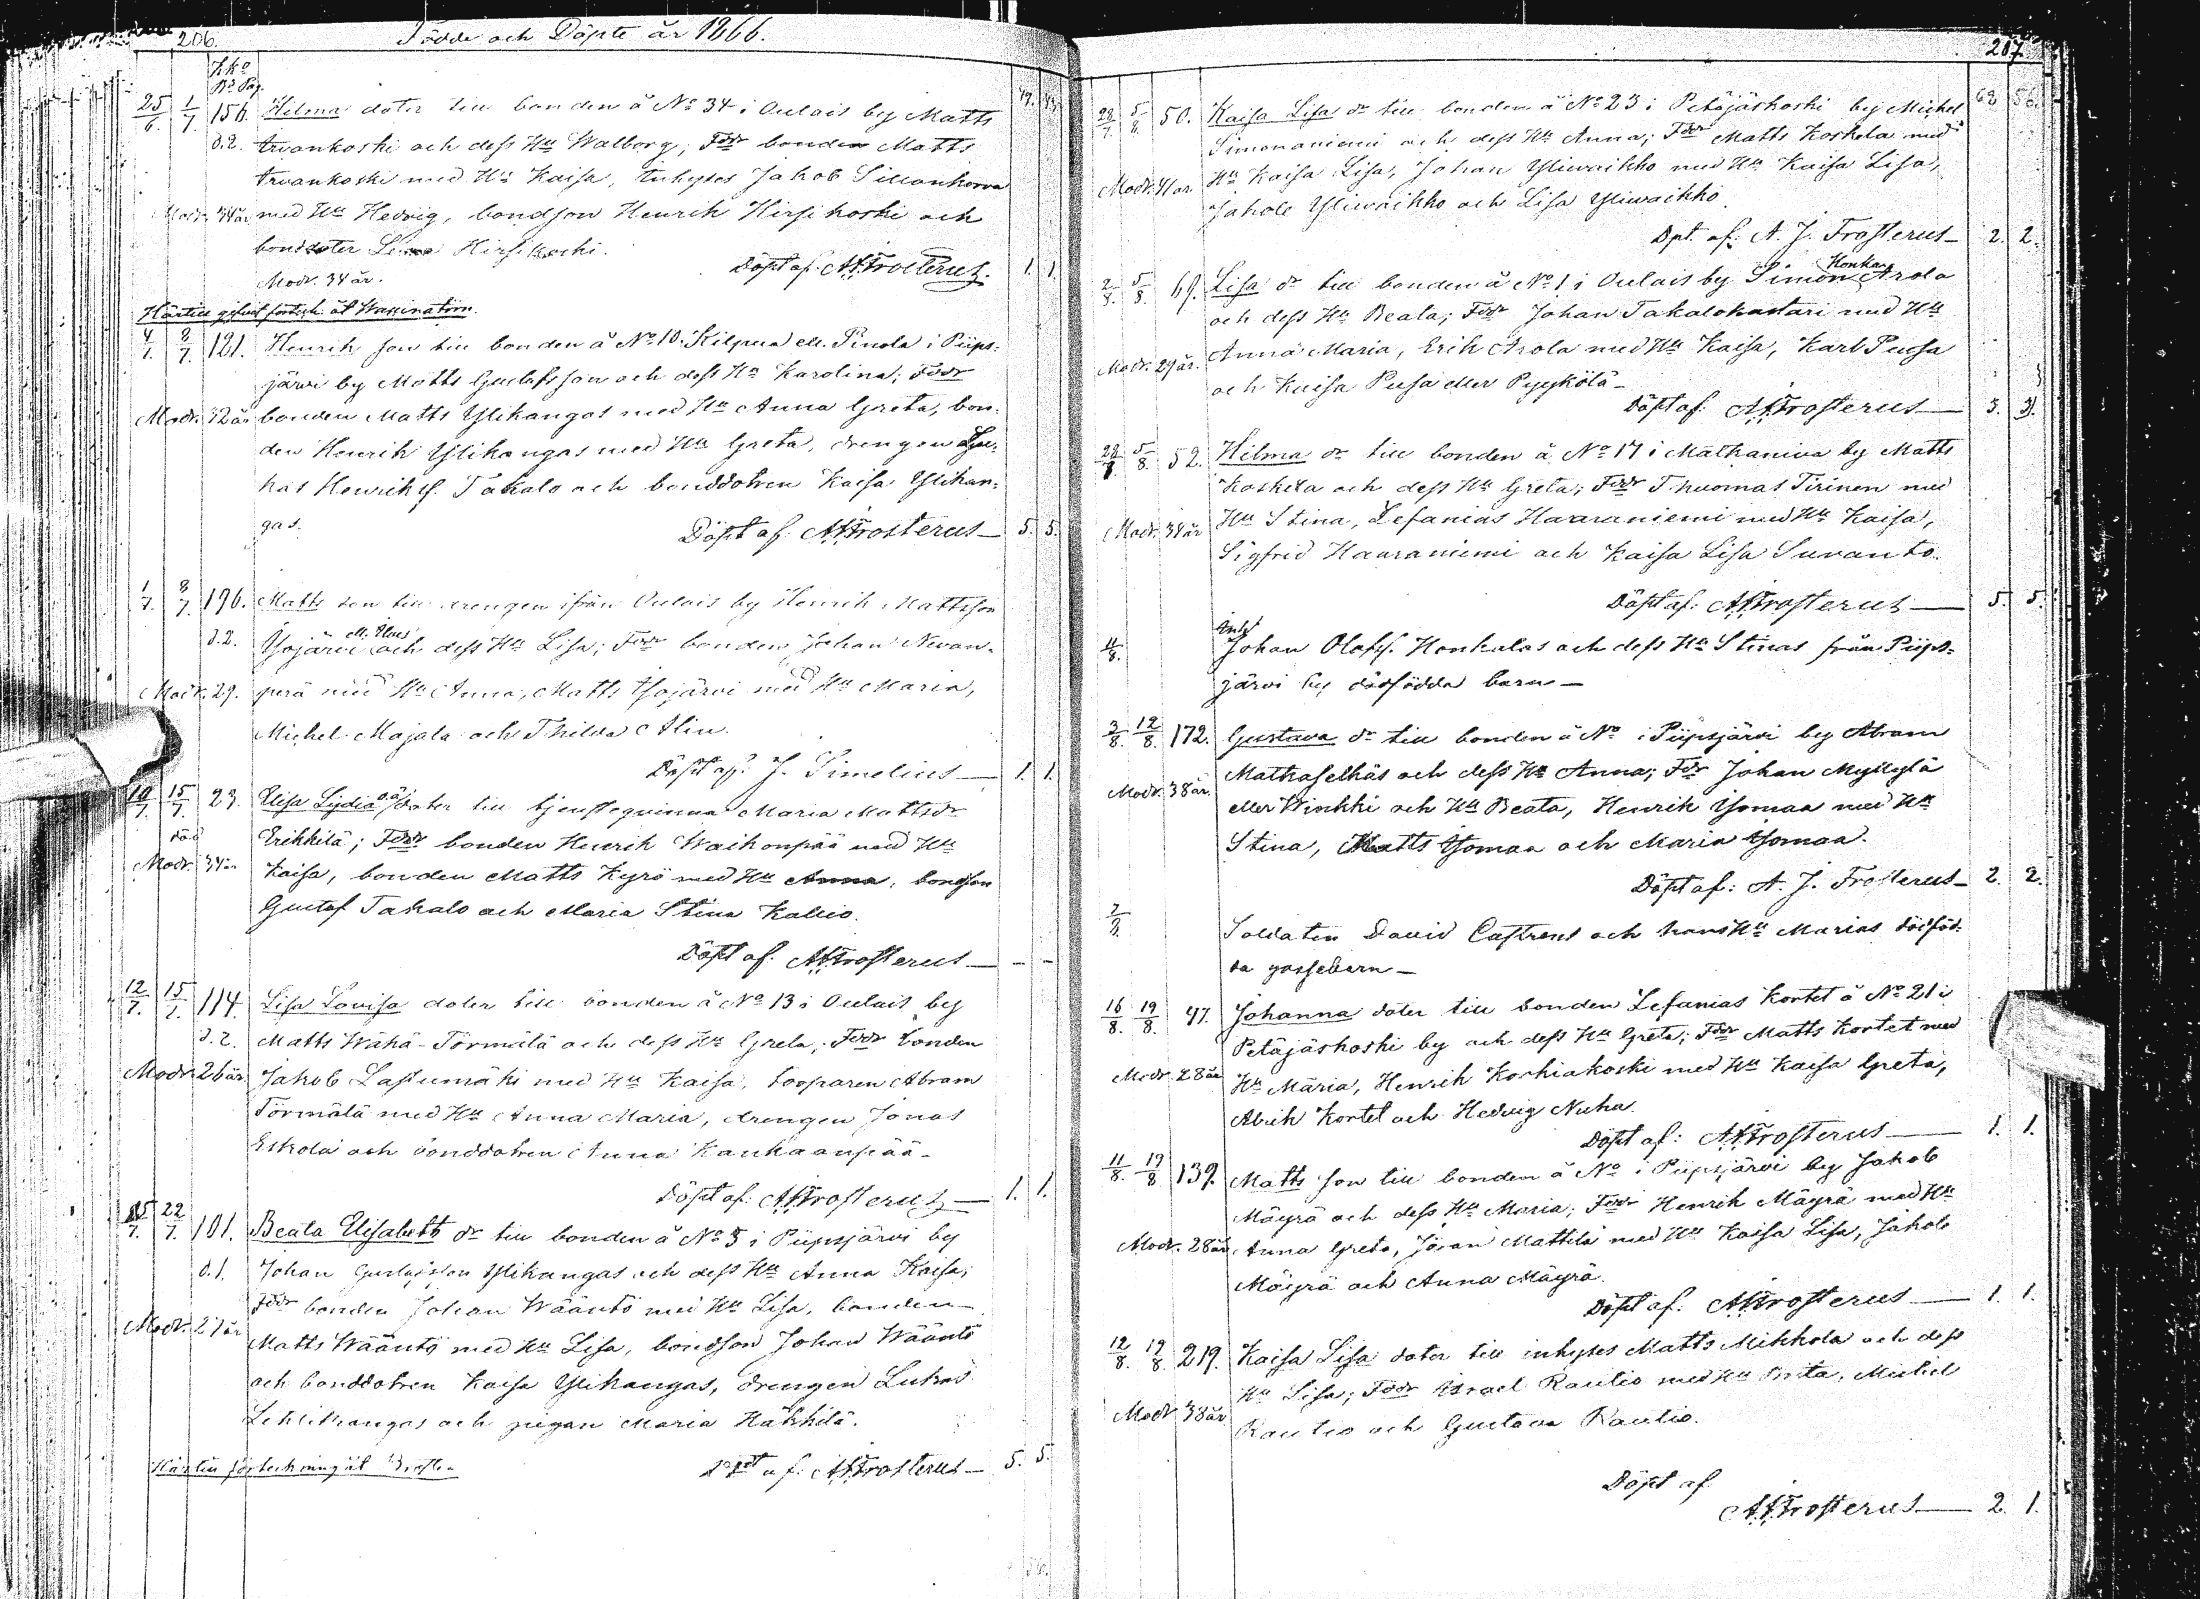 206.
Födde och Döpte år 1866.
Kko
No Pag.
49. 43.
25/6. 1/7 156. Hilma doter till bonden å No 34 i Oulais by Matts
d.2. Arvankoski och dess Hu Walborg; Fddr bonden Matts
Arvankoski med Hu Kaisa, Inhyses Jakob Sillankorva
Modr. 34 år med Hu Hedvig, bondson Henrik Hirsikoski och
bonddoter Hirsikoski.
Döpt af: A.J. Frosterus. 1. 1.
Modr. 34 år.
Härtill gifvet förteckn. åt Waxination.
4/7. 8/7. 121. Henrik son till bonden å No 10 Kilpua ell. Pinola i Piips-
järvi by Matts Gustafsson och dess Hu Karolina; Fddr
Modr. 32 år bonden Matts Ylikangas med Hu Anna Greta, bon-
den Henrik Ylikangas med Hu Greta, drengen Lu-
kas Henriks. Takalo och bonddotren Kaisa Ylikan-
gas.
Döpt af: A.J. Frosterus — 5. 5.
1/7. 8/7. 196. Matts son till drengen ifrån Oulais by Henrik Mattsson
d.2. Ysojärvi och dess Hu Lisa; Fddr bonden Johan Nevan-
Modr. 29. perä med Hu Anna, Matts Ysojärvi med Hu Maria,
Michel Majala och Thilda Alin.
Döpt af: J. Simelius — 1. 1.
10/7. 15/7. 23. Elisa Lydia oä. doter till tjensteqvinna Maria Mattsdr
död Erikkilä; Fddr bonden Henrik Waikonpää med Hu
Modr. 34 år Kaisa, bonden Matts Kyrö med Hu Anna, bondson
Gustaf Takalo och Maria Stina Kallio.
Döpt af. A.J. Frosterus — - -
12/7. 15/7. 114. Lisa Lovisa doter till bonden å No 13 i Oulais by
d.2. Matts Wähä-Törmälä och dess Hu Greta; Fddr bonden
Modr. 26 år Jakob Lastumäki med Hu Kaisa, Abram
Törmälä med Hu Anna Maria, drengen Jonas
Eskola och bonddotren Anna Kankaanpää -
Döpt af: A.J. Frosterus — 1. 1.
15/7. 22/7. 101. Beata Elisabeth dr till bonden å No 5 i Piipsjärvi by
d.1. Johan Gustafsson Ylikangas och dess Hu Anna Kaisa;
Fddr bonden Johan Wääntö med Hu Lisa, bonden
Modr. 27 år Matts Wääntö med Hu Lisa, bondson Johan Wääntö
och bonddotren Kaisa Ylikangas, drengen Lukas
Lehtikangas och pigan Maria Häkkilä.
Härtill förteckning åt
Döpt af: A.J. Frosterus — 5. 5.
207.
62 56.
28/7. 5/8. 50. Kaisa Lisa dr till bonden å No 23 i Petäjäskoski by Michel
Simonaniemi och dess Hu Anna; Fddr Matts Koskela med
Modr. 41 år Hu Kaisa Lisa, Johan Yliwaikko med Hu Kaisa Lisa,
Jakob Yliwaikko och Lisa Yliwaikko.
Dpt. af: A. J. Frosterus — 2. 2.
Honka
2/8. 5/8. 69. Lisa dr till bonden å No 1 i Oulais by Simon Arola
och dess Hu Beata; Fddr Johan Takalokastari med Hu
Modr. 29 år. Anna Maria, Erik Arola med Hu Kaisa, Karl Pusa
och Kaisa Pusa eller Pyykölä —
Döpt af: A.J. Frosterus — 3. 3.
28/7 5/8. 52. Hilma dr till bonden å No 17 i Matkaniva by Matts
Koskela och dess Hu Greta; Fddr Thuomas Tirinen med
Modr. 38 år Hu Stina, Zefanias Haaraniemi med Hu Kaisa,
Sigfrid Haaraniemi och Kaisa Lisa Suvanto.
Döpt af: A.J. Frosterus — 5. 5.
4/8. Johan Olafs. Honkalas och dess Hu Stinas från Piips-
järvi by dödfödda barn —
3/8. 12/8. 172. Gustava dr till bonden å No i Piipsjärvi by Abram
Modr. 38 år. Matkaselkäs och dess Hu Anna; Fdr Johan Myllylä
eller Winkki och Hu Beata, Henrik Ysomaa med Hu
Stina, Matts Ysomaa och Maria Ysomaa.
Döpt af: A. J. Frosterus — 2. 2.
7/8. Soldaten David Castrens och hans Hu Marias dödföd-
da gossebarn —
16/8. 19/8. 47. Johanna doter till bonden Zefanias Kortet å No 21 i
Petäjäskoski by och dess Hu Greta; Fddr Matts Kortet med
Modr. 28 år Hu Maria, Henrik Koskiakoski med Hu Kaisa Greta,
Kortet och Hedvig Nuha.
Döpt af: A.J. Frosterus — 1. 1.
11/8. 19/8 139. Matts son till bonden å No i Piipsjärvi by Jakob
Mäyrä och dess Hu Maria; Fddr Henrik Mäyrä med Hu
Modr. 28 år Anna Greta, Johan Mattila med Hu Kaisa Lisa, Jakob
Mäyrä och Anna Mäyrä.
Döpt af: A.J. Frosterus — 1. 1.
12/8. 19/8. 219. Kaisa Lisa doter till inhyses Matts Mikkola och dess
Hu Lisa; Fddr Israel Rautio med Hu Brita, Michel
Modr 38 år Rautio och Gustava Rautio.
Döpt af
A.J. Frosterus — 2. 1.